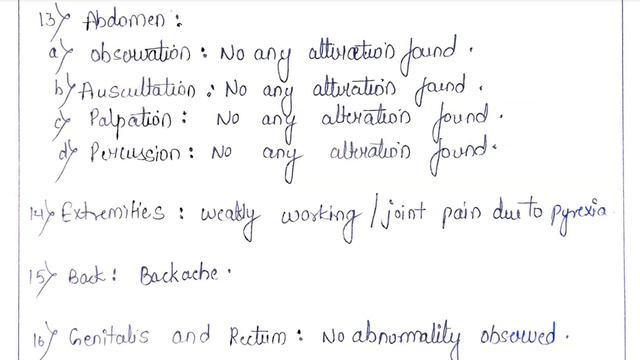 13) Abdomen :
a) Observation : No any alteration found .
b) Auscultation : No any alteration found .
c) Palpation : No any alteration found .
d) Percussion : No any alteration found .
14) Extremities : weakly working / joint pain due to pyrexia
15) Back : Backache .
16) Genitalis and Rectum : No abnormality observed .